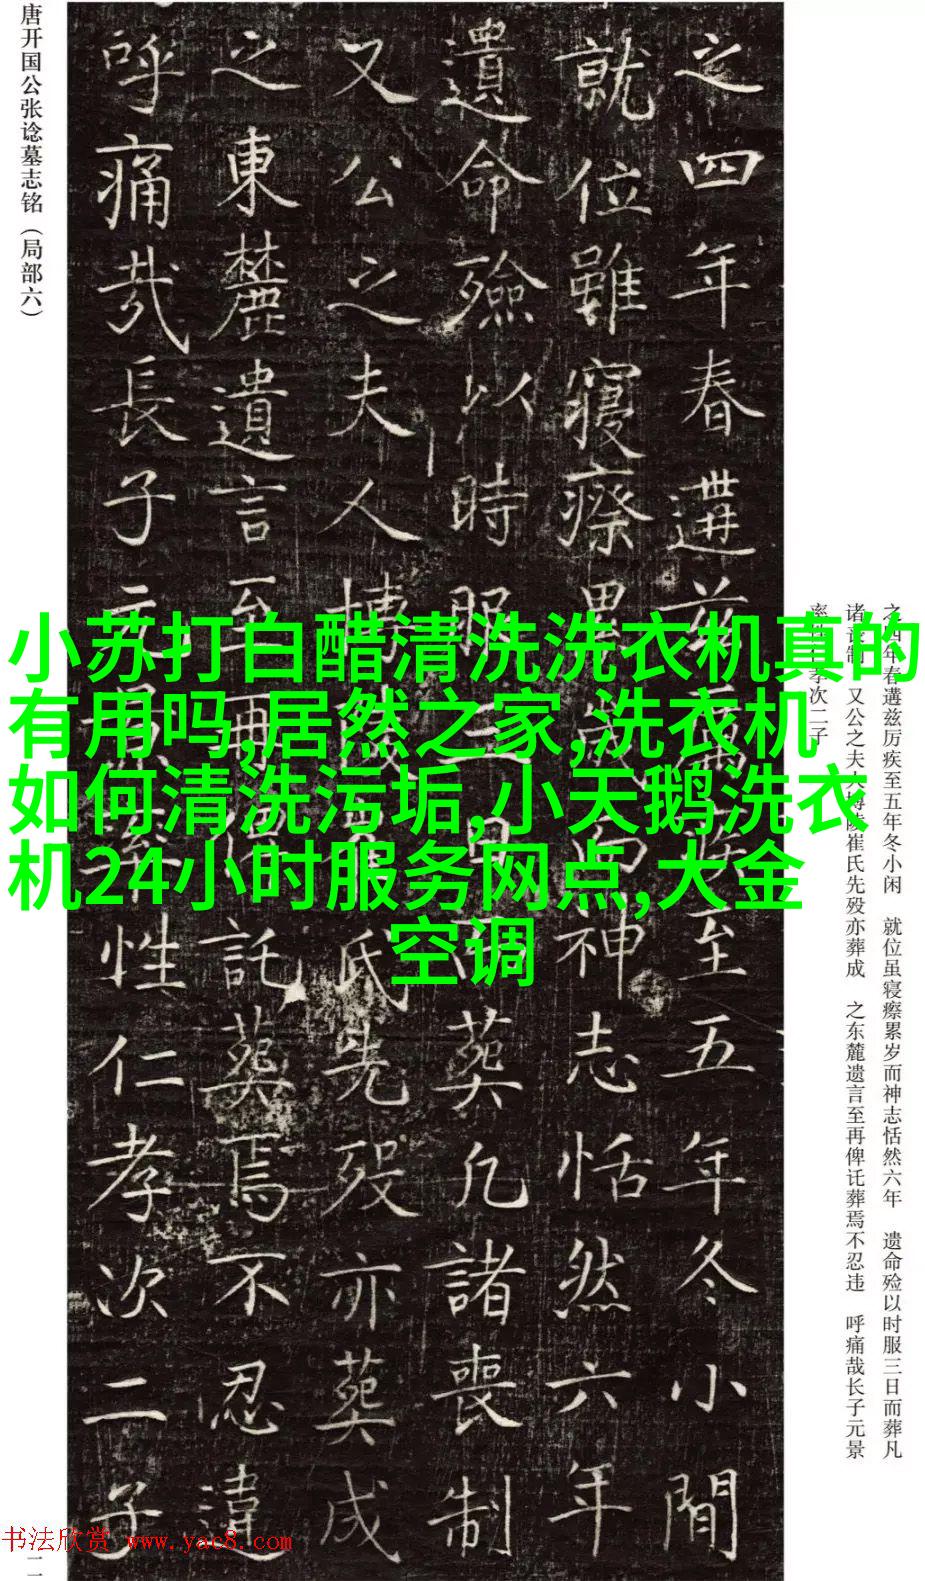 唐开国公张谂墓志铭（局部六）
之四年春遘兹厲疾至五年冬小閒
就位雖寢瘵累歲而神志恬然六年
遺命殮以時服三日而葬凡諸喪制
又公之夫人博陵崔氏先歿亦葬成
之東麓遺言至再俾託葬焉不忍違
呼痛哉長子元景率性仁孝次二子
之四年春遘兹厉疾至五年冬小闲 就位虽寝瘵累岁而神志恬然六年 遗命殓以时服三日而葬凡
诸丧制 又公之夫人博陵崔氏先殁亦葬成 之东麓遗言至再俾讬葬焉不忍违 呼痛哉长子元景
率性仁孝次二子
小苏打白醋清洗洗衣机真的
有用吗,居然之家,洗衣机
如何清洗污垢,小天鹅洗衣
机24小时服务网点,大金
空调
书法欣赏 www.yac8.com